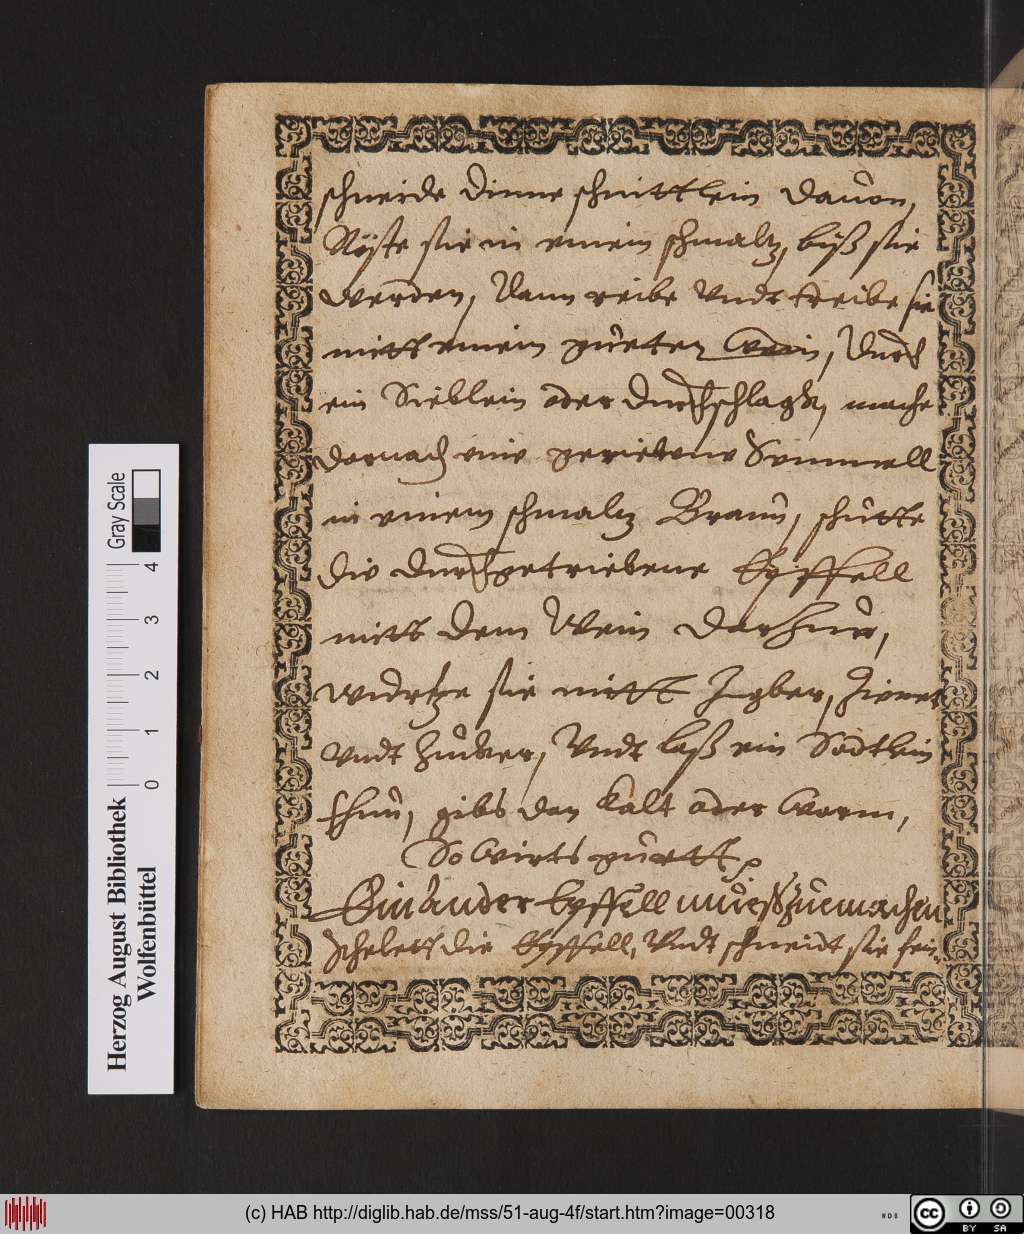 schneide dinne schnittlein dauon,
Röste sie in einem schmaltz, biß sie
werden, Dann reibe Vndt treibe sie
mitt einem gueten Wein, Durch
ein Sieblein oder Durchschlagk, mache
darnach eine geriebene Semmell
in einem schmaltz Braun, schütte
die durchgetriebene Epffell
mitt dem Wein darZue,
würtze sie mitt Ingber, Zimet
Vndt Zucker, Vndt laß ein Södtlein
thun, gibs dan kalt oder warm,
So wirts guett.
Ein Ander Epffell mueß Zue machen
Schelett die Epffell, Vndt schneidt sie fein
Herzog August Bibliothek
Wolfenbüttel
Gray Scale
0 1 2 3 4
(c) HAB http://diglib.hab.de/mss/51-aug-4f/start.htm?image=00318
WDB
cc BY SA